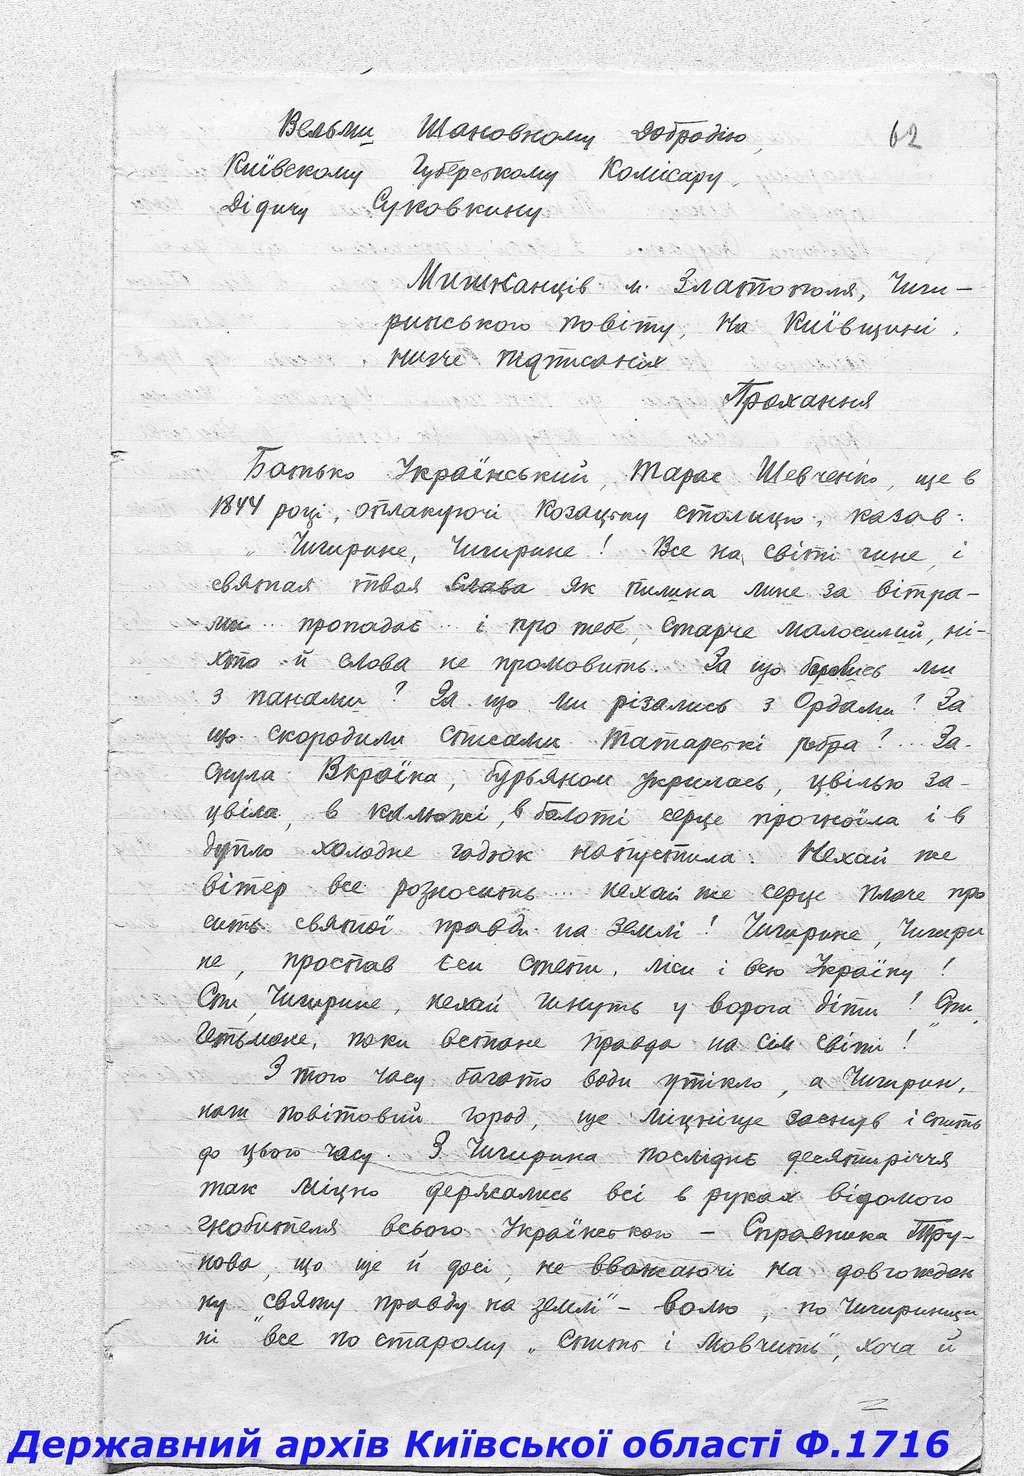 Вельми Шановному Добродію,
62
Київскому Губерському Комісару,
Дідичу Суковкину
Мишканців м. Златополя, Чиги-
ринського повіту, на Київщині,
низче підписаніх
Прохання
Батько Український, Тарас Шевченко, ще в
1844 році, оплакуючі Козацьку столицю, казав:
„Чигирине, Чигирине! Все на світі гине, і
святая твоя слава як пилина лине за вітра-
ми... пропадає... і про тебе, старче малосилий, ні-
хто й слова не промовить. За що боролись ми
з панами? За що ми різались з Ордами? За
що скородили списами татарські ребра?... За-
снула Вкраїна, бурьяном укрилась, цвілью за-
цвіла, в калюжі, в болоті серце прогноїла і в
дупло холодне гадюк напустила. Нехай же
вітер все розносить... нехай же серце плаче про
сить святої правди на землі! Чигирине, Чигири
не, проспав єси степи, ліси і всю Україну!
Спи, Чигирине, нехай гинуть у ворога діти! Спи,
Гетьмане, поки встане правда на сім світі!"
З того часу багато води утікло, а Чигирин,
наш повітовий город, ще міцніще заснув і спить
до цього часу. З Чигирина посліднє десятиріччя
так міцно держались всі в руках відомого
гнобителя всього Українського - Справника Тру-
нова, що ще й досі, не вважаючі на довгождан
ну „святу правду на землі" - волю, по Чигиринщи
ні "все по старому „спить і мовчить", хоча й
Державний архів Київської області Ф.1716